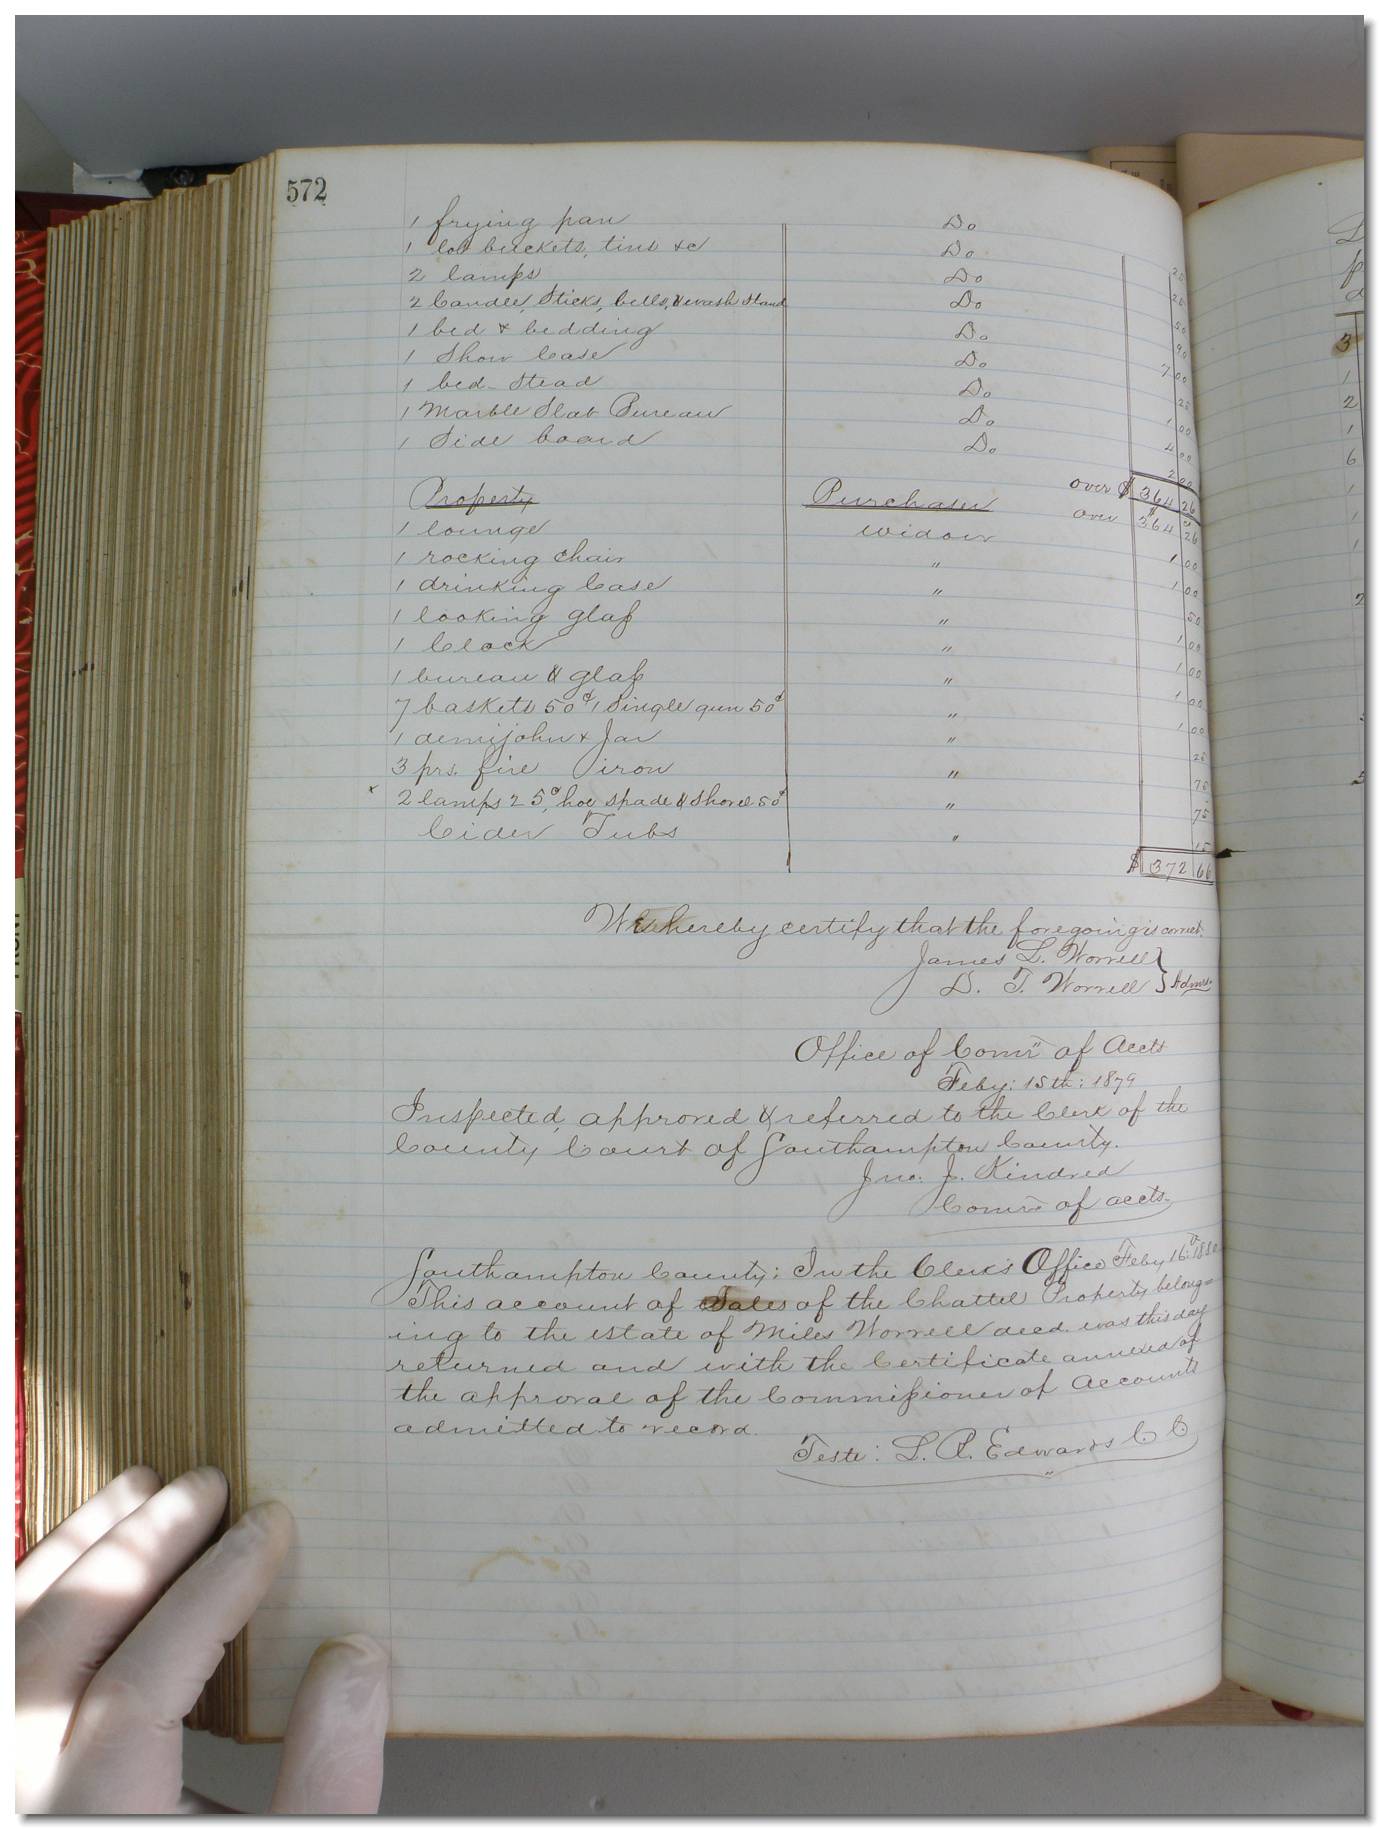 572
1 frying pan Do 20
1 lot buckets, tins &c Do 25
2 lamps Do 50
2 Candle, Sticks, bells, & wash Stand Do 90
1 bed & bedding Do 7 00
1 Show Case Do 25
1 bed-Stead Do 1 00
1 Marble Slab Bureau Do 4 00
1 Side board Do 2 00
over $ 364 26
Property Purchaser over $ 364 26
1 lounge widow 1 00
1 rocking Chair " 1 00
1 drinking Case " 50
1 looking glass " 1 00
1 Clock " 1 00
1 bureau & glass " 1 00
7 baskets 50c 1 Single gun 50c " 1 00
1 demijohn & Jar " 25
3 prs. fire iron " 75
x 2 lamps 25c, hoe spade & Shovel 50c " 75
Cider Tubs " 15
$ 372 66
We hereby certify that the foregoing is correct.
James L. Worrell }
D. T. Worrell } Admrs.
Office of Comr" of Accts
Feby: 15th: 1879
Inspected, approved & referred to the Clerk of the
County Court of Southampton County.
Jno. J. Kindred
Comr" of accts.
Southampton County: In the Clerk's Office Feby 16th 1880
This account of Sales of the Chattel Property belong=
ing to the estate of Miles Worrell decd. was this day
returned and with the Certificate annexed of
the approval of the Commissioner of Accounts
admitted to record.
Teste: L. R. Edwards C C